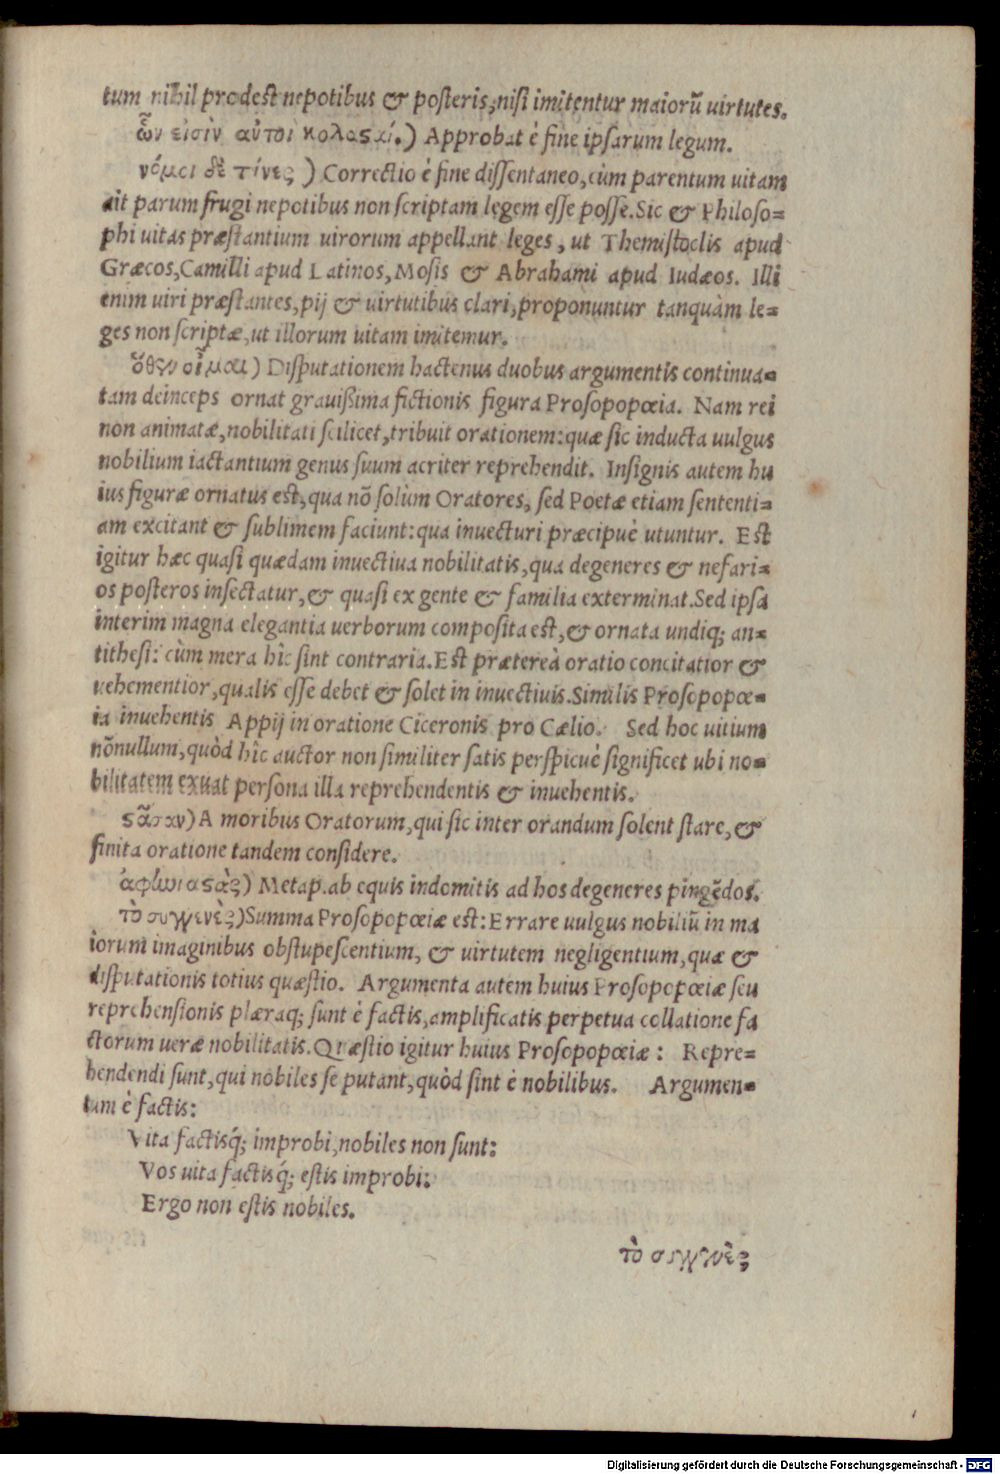 tum nihil prodest nepotibus & posteris, nisi imitentur maiorũ uirtutes.
ὧν εἰσὶν αὐτοὶ κολαςαί.) Approbat è fine ipsarum legum.
νόμοι δὲ τίνες) Correctio è fine dissentaneo, cùm parentum uitam
ait parum frugi nepotibus non scriptam legem esse posse. Sic & Philoso=
phi uitas præstantium uirorum appellant leges, ut Themistoclis apud
Græcos, Camilli apud Latinos, Mosis & Abrahami apud Iudæos. Illi
enim uiri præstantes, pij & uirtutibus clari, proponuntur tanquàm le=
ges non scriptæ, ut illorum uitam imitemur.
ὅθεν οἶμαι) Disputationem hactenus duobus argumentis continua=
tam deinceps ornat grauißima fictionis figura Prosopopœia. Nam rei
non animatæ, nobilitati scilicet, tribuit orationem: quæ sic inducta uulgus
nobilium iactantium genus suum acriter reprehendit. Insignis autem hu
ius figuræ ornatus est, qua nõ solùm Oratores, sed Poetæ etiam sententi=
am excitant & sublimem faciunt: qua inuecturi præcipuè utuntur. Est
igitur hæc quasi quædam inuectiua nobilitatis, qua degeneres & nefari=
os posteros insectatur, & quasi ex gente & familia exterminat. Sed ipsa
interim magna elegantia uerborum composita est, & ornata undiq; an=
tithesi: cùm mera hîc sint contraria. Est prætereà oratio concitatior &
uehementior, qualis esse debet & solet in inuectiuis. Similis Prosopopœ=
ia inuehentis Appij in oratione Ciceronis pro Cælio. Sed hoc uitium
nõnullum, quòd hîc auctor non similiter satis perspicuè significet ubi no=
bilitatem exuat persona illa reprehendentis & inuehentis.
ςᾶσαν) A moribus Oratorum, qui sic inter orandum solent stare, &
finita oratione tandem considere.
ἀφωιαςὰς) Metap. ab equis indomitis ad hos degeneres pingẽdos.
τὸ συγγενὲς) Summa Prosopopœiæ est: Errare uulgus nobiliũ in ma
iorum imaginibus obstupescentium, & uirtutem negligentium, quæ &
disputationis totius quæstio. Argumenta autem huius Prosopopœiæ seu
reprehensionis plæraq; sunt è factis, amplificatis perpetua collatione fa
ctorum ueræ nobilitatis. Quæstio igitur huius Prosopopœiæ: Repre=
hendendi sunt, qui nobiles se putant, quòd sint è nobilibus. Argumen=
tum è factis:
Vita factisq́; improbi, nobiles non sunt:
Vos uita factisq́; estis improbi:
Ergo non estis nobiles.
τὸ συγγενὲς
Digitalisierung gefördert durch die Deutsche Forschungsgemeinschaft - DFG